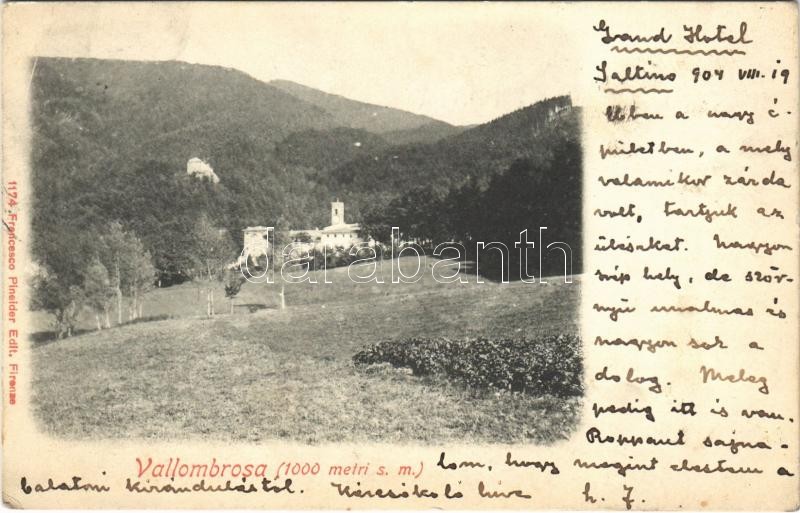 Grand Hotel
Saltino 904 VIII. 19
Ebben a nagy é-
pületben, a mely
valamikor zárda
volt, tartjuk az
üléseket. Nagyon
szép hely, de ször-
nyü unalmas és
nagyon sok a
dolog. Meleg
pedig itt is van.
Roppant sajná-
lom, hogy megint elestem a
balatoni kirándulástól. Kézcsókoló híve
1174 Francesco Pineider Edit. Firenze
darabanth
Vallombrosa (1000 metri s. m.)